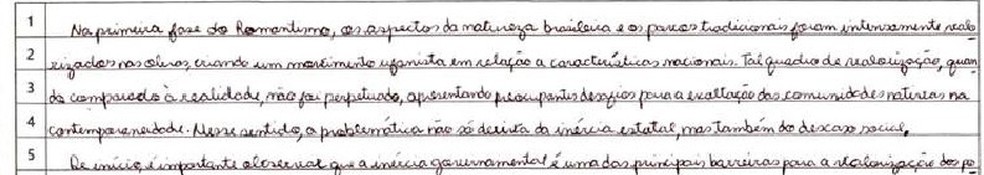 1 Na primeira fase do Romantismo, os aspectos da natureza brasileira e os povos tradicionais foram intensamente valo
2 rizados nas obras, criando um movimento ufanista em relação a características nacionais. Tal quadro de valorização, quan
3 do comparado à realidade, não foi perpetuado, apresentando preocupantes desafios para a exaltação das comunidades nativas na
4 contemporaneidade. Nesse sentido, a problemática não só deriva da inércia estatal, mas também do descaso social.
5 De início, é importante observar que a inércia governamental é uma das principais barreiras para a valorização dos po